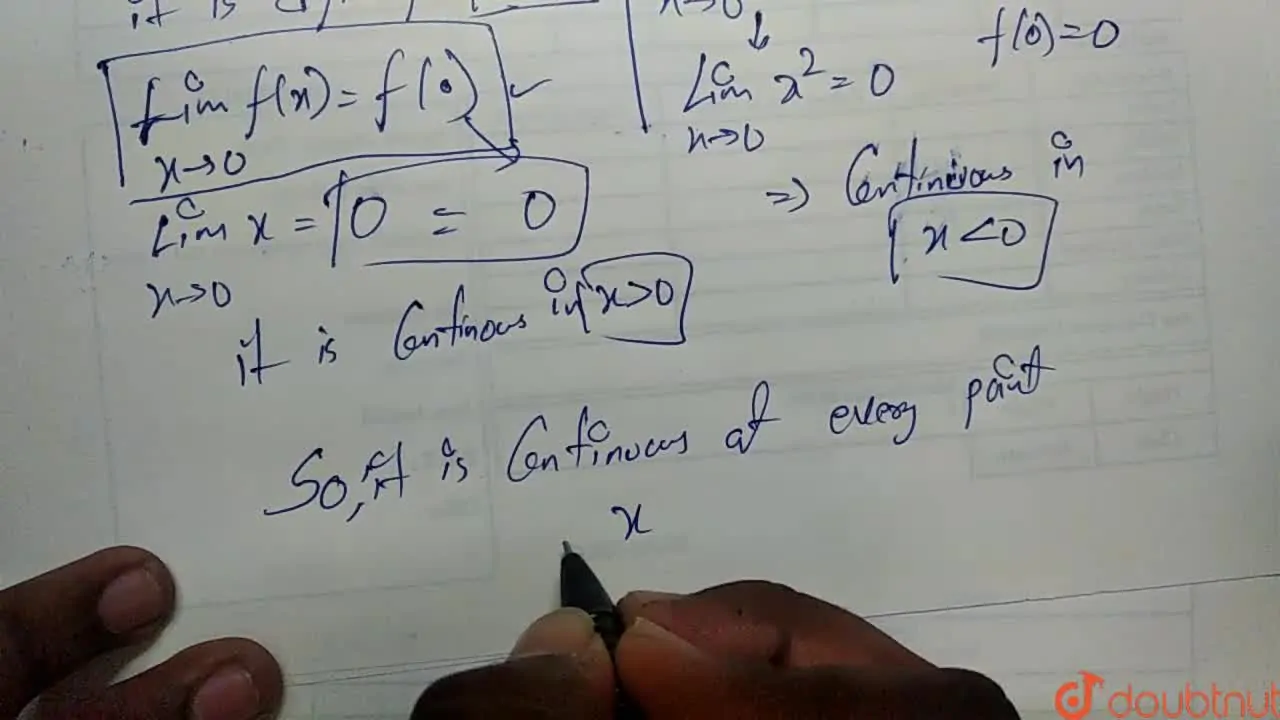 it is
Lim f(x) = f(0) ✓
x→0
Lim x = 0 = 0
x→0
it is Continous in x>0
x→0
↓
Lim x² = 0
x→0
f(0)=0
=> Continuous in
x<0
So, it is Continuous at every point
x
doubtnut